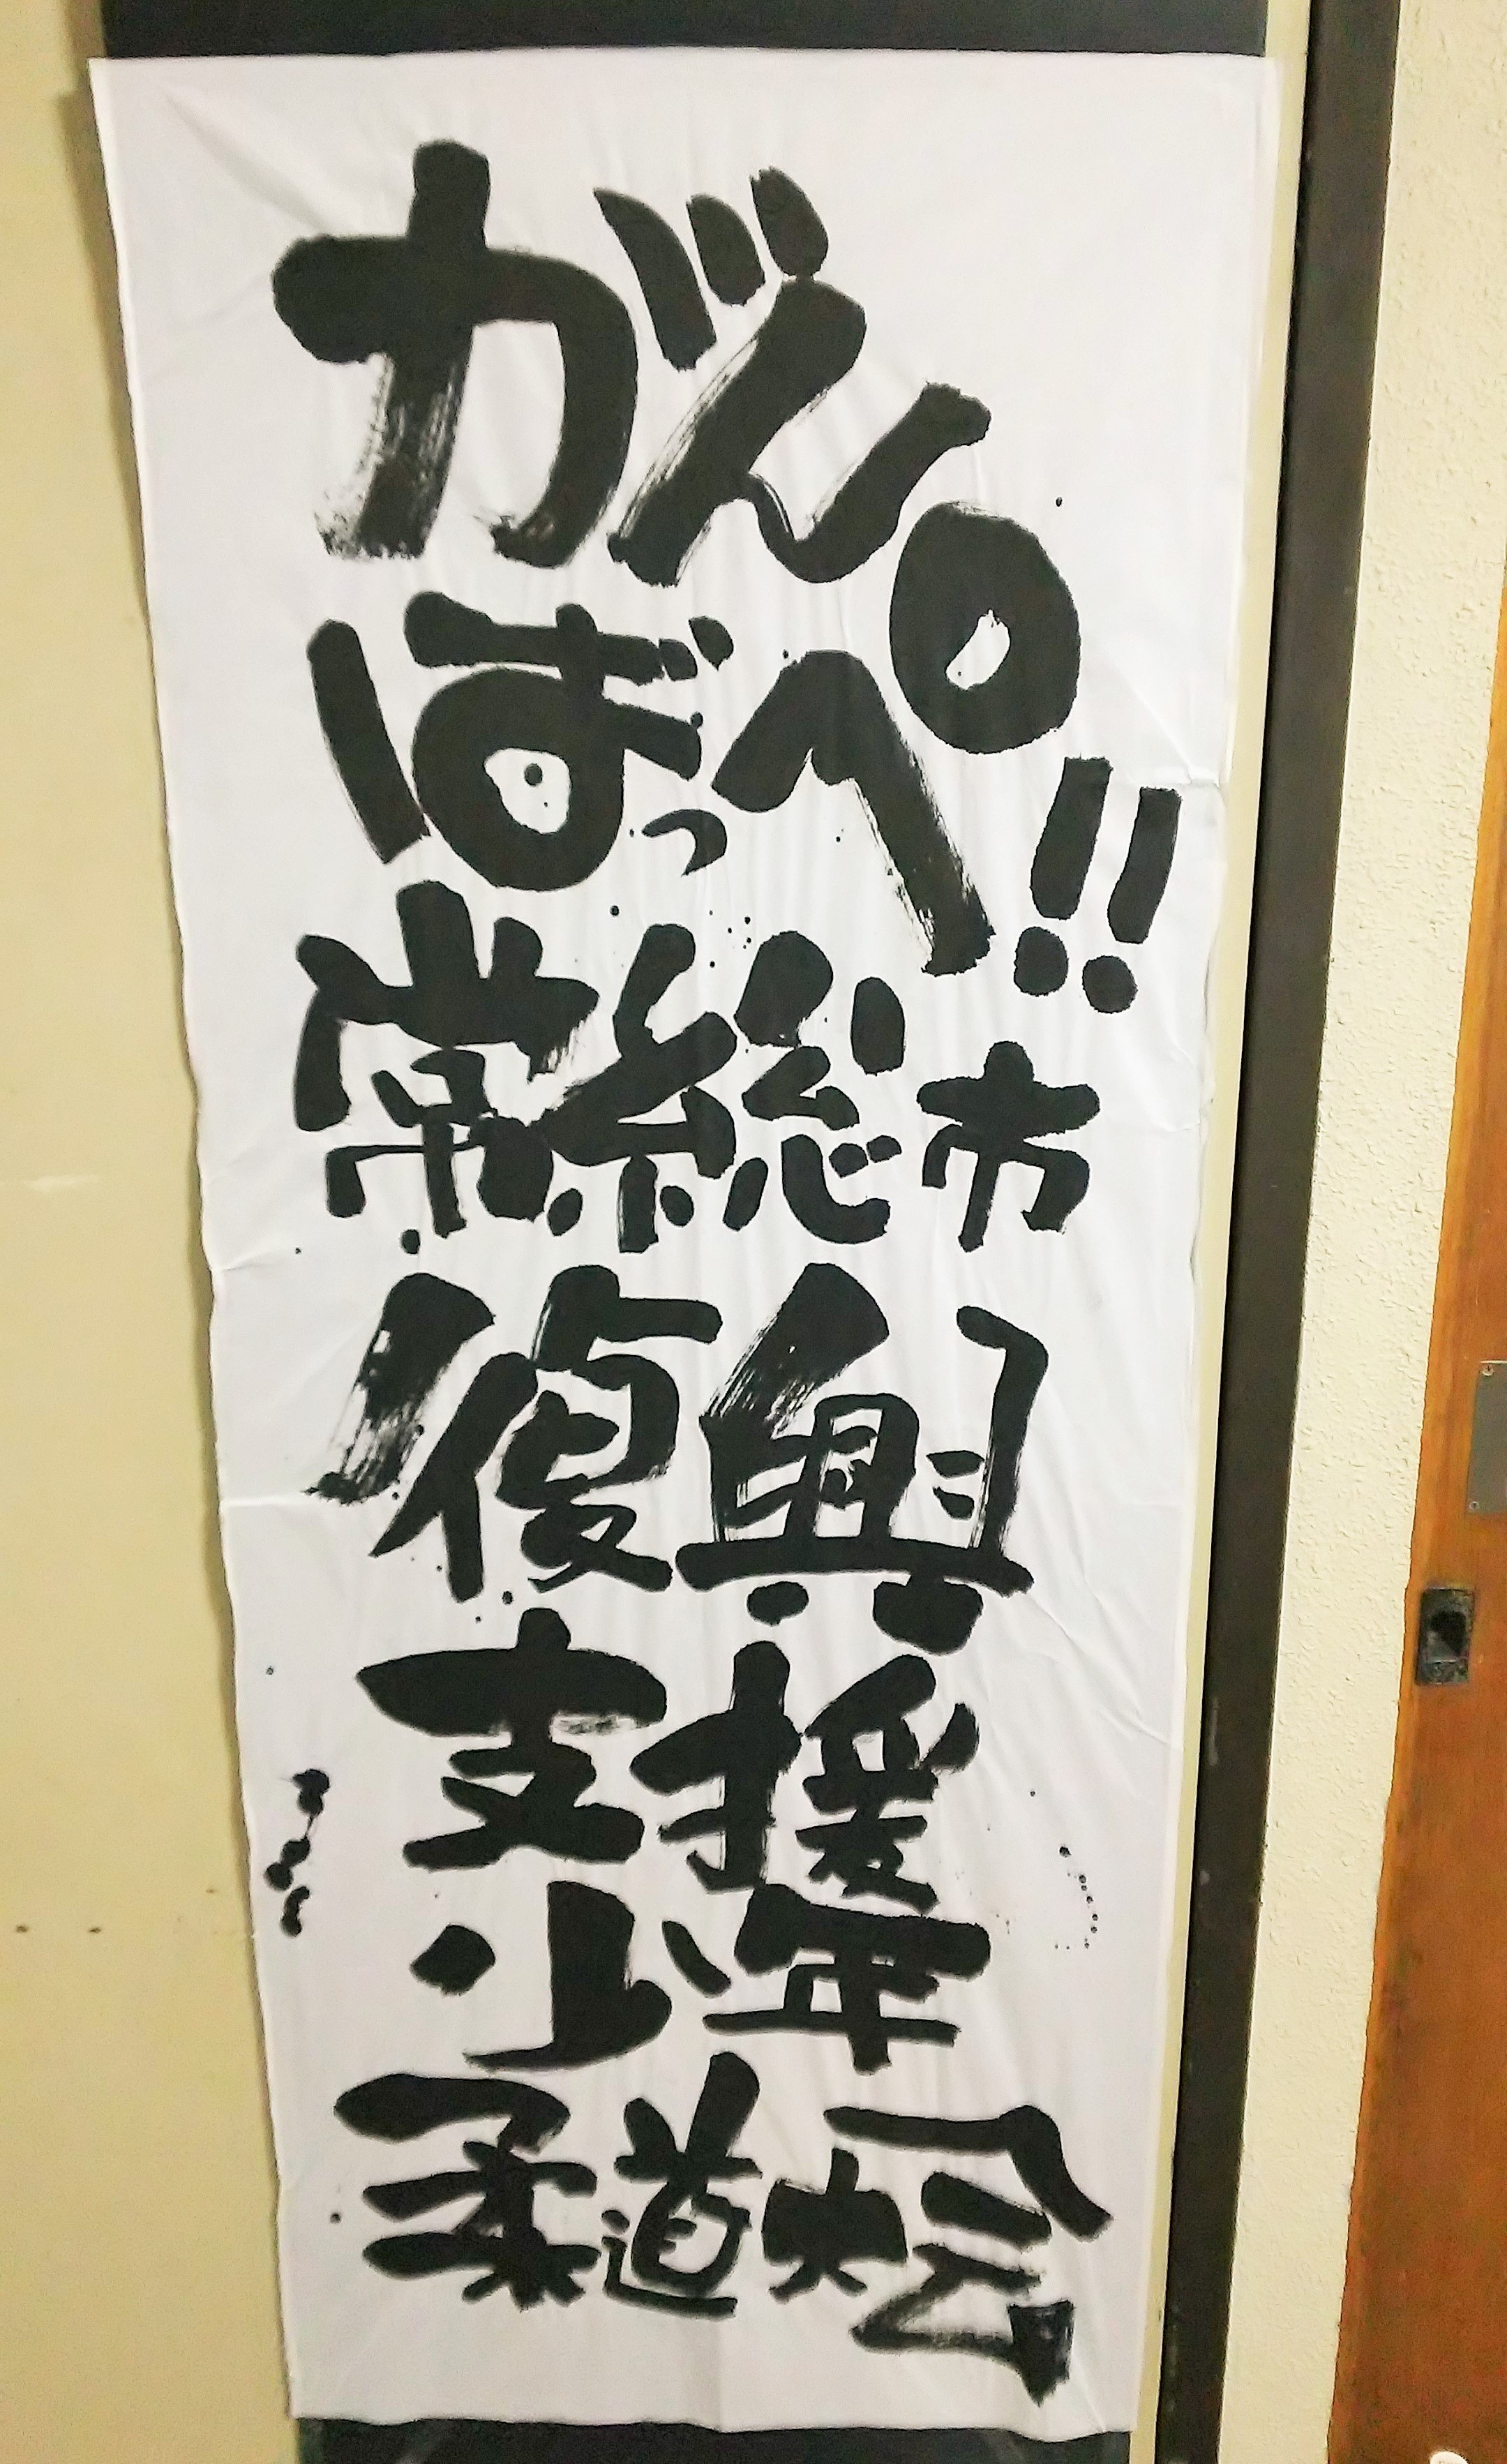 がん
ばっぺ!!
常総市
復興
支援
少年
柔道大会